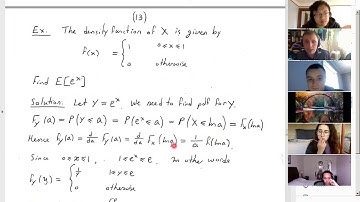 (13)
Ex. The density function of X is given by
f(x) = { 1 0≤x≤1
0 otherwise
Find E[eˣ]
Solution: Let Y=eˣ. We need to find pdf for Y.
F_Y(a) = P(Y≤a) = P(eˣ≤a) = P(X≤ln a) = F_X(ln a)
Hence f_Y(a) = d/da F_Y(a) = d/da F_X(ln a) = 1/a f(ln a).
Since 0≤x≤1, 1≤eˣ≤e. In other words
f_Y(y) = { 1/y 1≤y≤e
0 otherwise